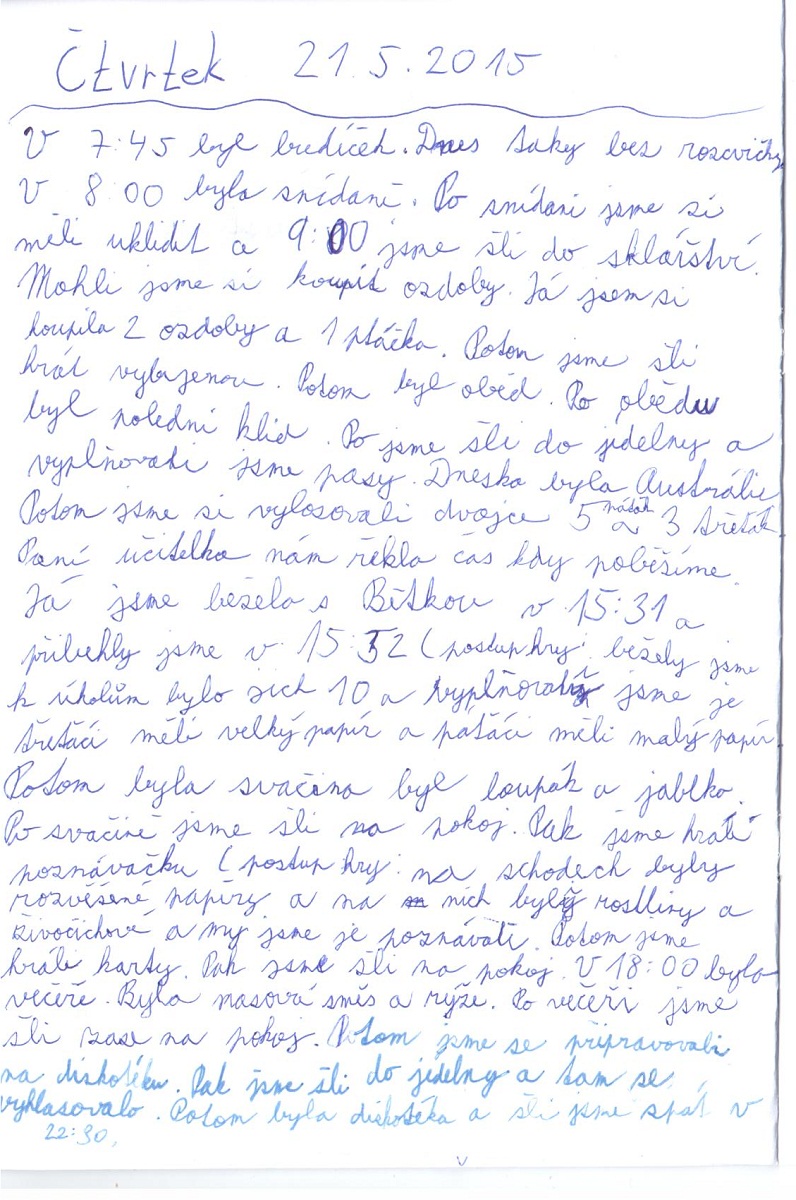 Čtvrtek 21.5.2015
V 7:45 byl budíček. Dnes taky bez rozcvičky
V 8:00 byla snídaně. Po snídani jsme si
měli uklidit a 9:00 jsme šli do sklářství.
Mohli jsme si koupit ozdoby. Já jsem si
koupila 2 ozdoby a 1 ptáčka. Potom jsme šli
hrát vybíjenou. Potom byl oběd. Po obědu
byl polední klid. Po jsme šli do jídelny a
vyplňovali jsme pasy. Dneska byla Austrálie
Potom jsme si vylosovali dvojce 5 náťák a 3 třeťák
Paní učitelka nám řekla čas kdy poběžíme.
Já jsme běžela s Bětkou v 15:31 a
přiběhly jsme v 15:52 (postup hry: běžely jsme
k úkolům bylo jich 10 a vyplňovaly jsme je
třeťáci měli velký papír a páťáci měli malý papír
Potom byla svačina byl loupák a jablko.
Po svačině jsme šli na pokoj. Pak jsme hráli
poznávačku (postup hry: na schodech byly
rozvěšené papíry a na nich byly rostliny a
živočichové a my jsme je poznávali. Potom jsme
hráli karty. Pak jsme šli na pokoj. V 18:00 byla
večeře. Byla masová směs a rýže. Po večeři jsme
šli zase na pokoj. Potom jsme se připravovali
na diskotéku. Pak jsme šli do jídelny a tam se
vyhlasovalo. Potom byla diskotéka a šli jsme spát v
22:30.